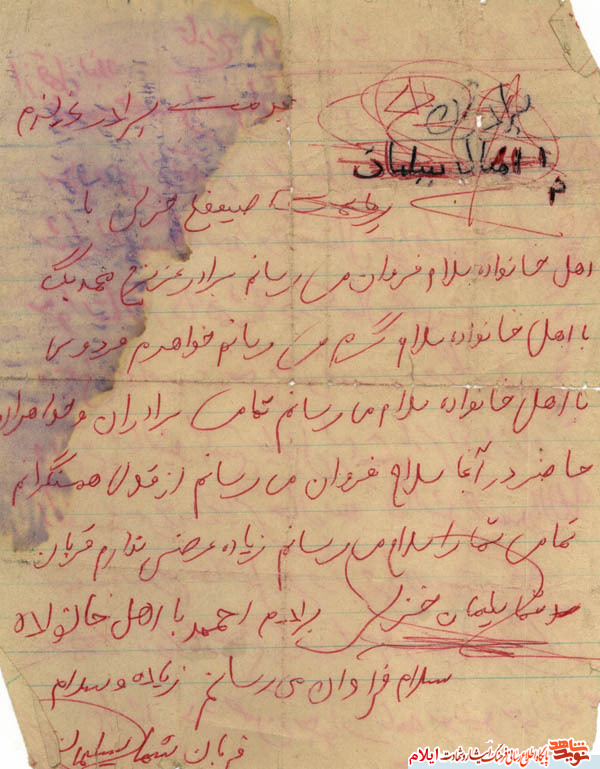 خدمت برادر عزیزم
سلیمان
خزلی با
اهل خانواده سلام فروان می رسانم برادر عزیزم محمد بگ
با اهل خانواده سلام گرم می رسانم خواهرم فردوس
با اهل خانواده سلام می رسانم تمامی برادران و خواهران
حاضر در آنجا سلام فروان می رسانم از قول همسنگرانم
تمامی شما را سلام می رسانم زیاده عرضی ندارم قربان
شما سلیمان خزلی برادرم احمد با اهل خانواده
سلام فراوان می رسانم زیاده وسلام
قربان شما سلیمان
نوید شاهد
پایگاه اطلاع رسانی فرهنگ ایثار و شهادت ایلام